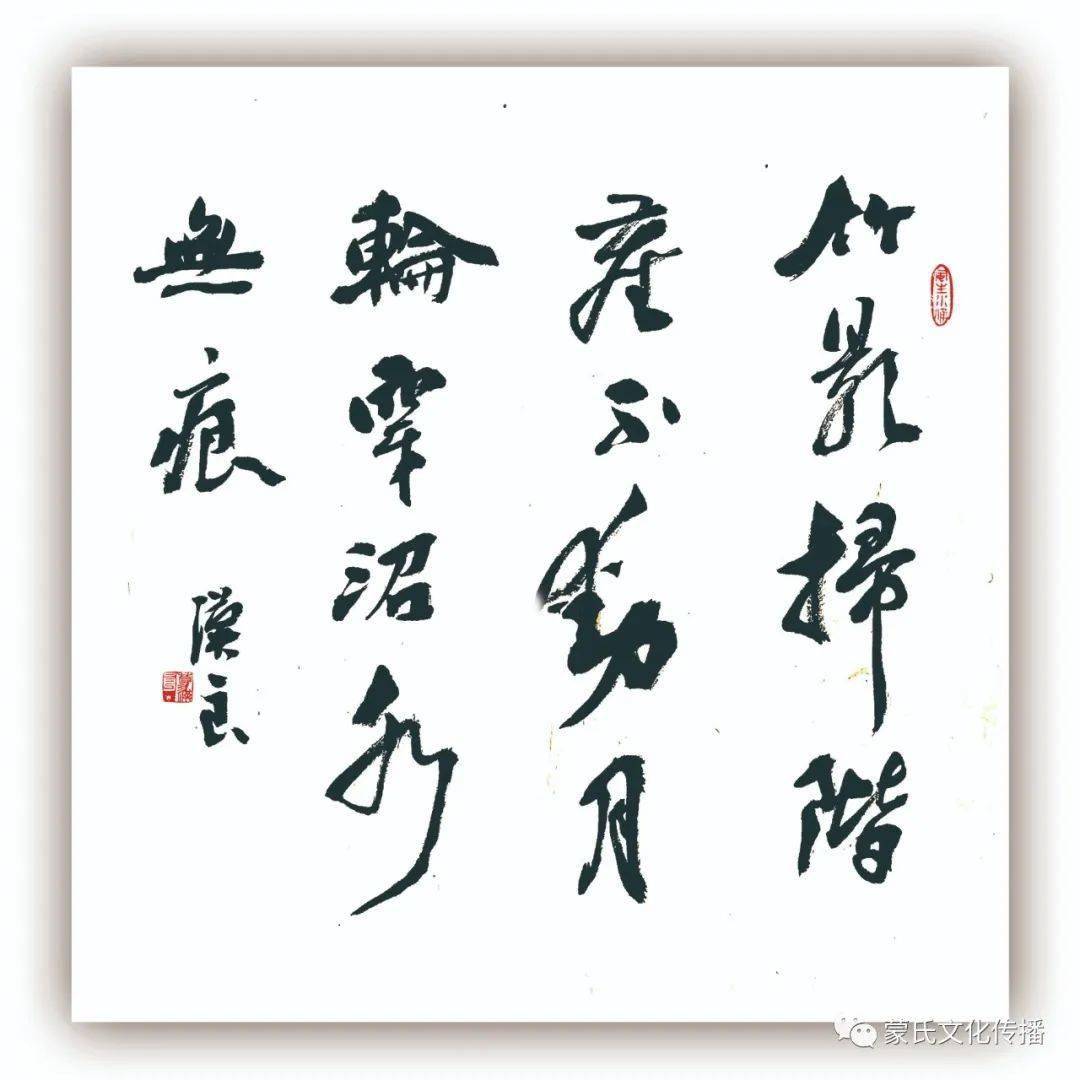 竹影掃階
塵不動月
輪穿沼水
無痕
漢良
蒙氏文化传播